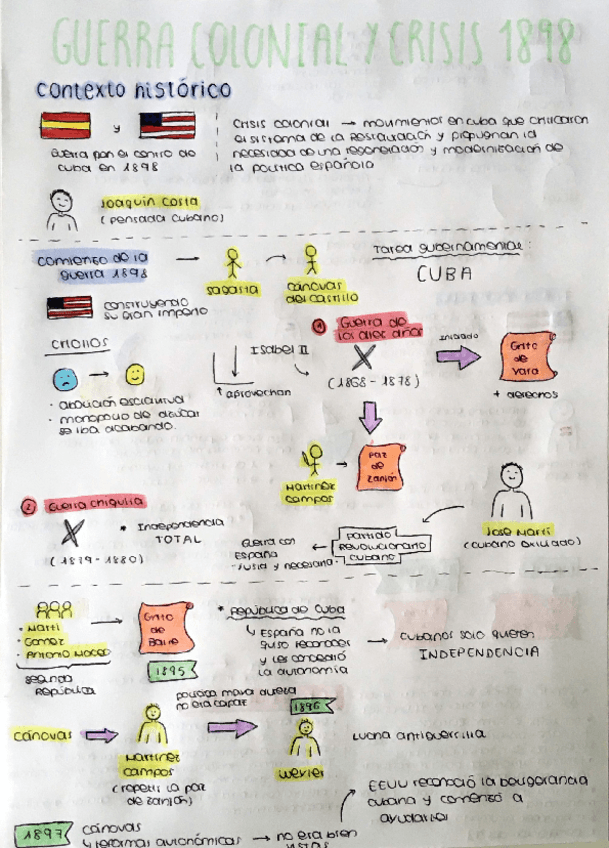 GUERRA COLONIAL Y CRISIS 1898
contexto histórico
y
Guerra por el control de
Cuba en 1898
Crisis colonial → movimientos en Cuba que criticaron
el sistema de la Restauración y proponían la
necesidad de una regeneración y modernización de
la política española
Joaquín Costa
(pensada cubano)
comienzo de la
guerra 1898
→ Sagasta
Cánovas
del Castillo
Tarea gubernamental:
CUBA
construyendo
su gran imperio
criollos
· abolición esclavitud
· monopolio de azúcar
se iba acabando.
Isabel II
↑ aprovechan
1 Guerra de
los diez años
(1868 - 1878)
Iniciado
Grito
de
Yara
+ derechos
Martínez
campos
→
Paz
de
Zanjón
2 Guerra chiquita
(1879 - 1880)
* Independencia
TOTAL
José Martí
(cubano exiliado)
Partido
Revolucionario
cubano
←
Guerra con
España
"Justa y necesaria"
· Martí
· Gómez
· Antonio Maceo
segunda
República
Grito
de
Baire
1895
* República de Cuba
↳ España no la
quiso reconocer
y les concedió
la autonomía
→ cubanos solo quieren
INDEPENDENCIA
cánovas
Martínez
campos
(repetir la paz
de Zanjón)
política mano dura
no era capaz
1896
weyler
Lucha antiguerrilla
1897
cánovas
y reformas autonómicas → no era bien
vistas
EEUU reconoció la beligerancia
cubana y comenzó a
ayudarles